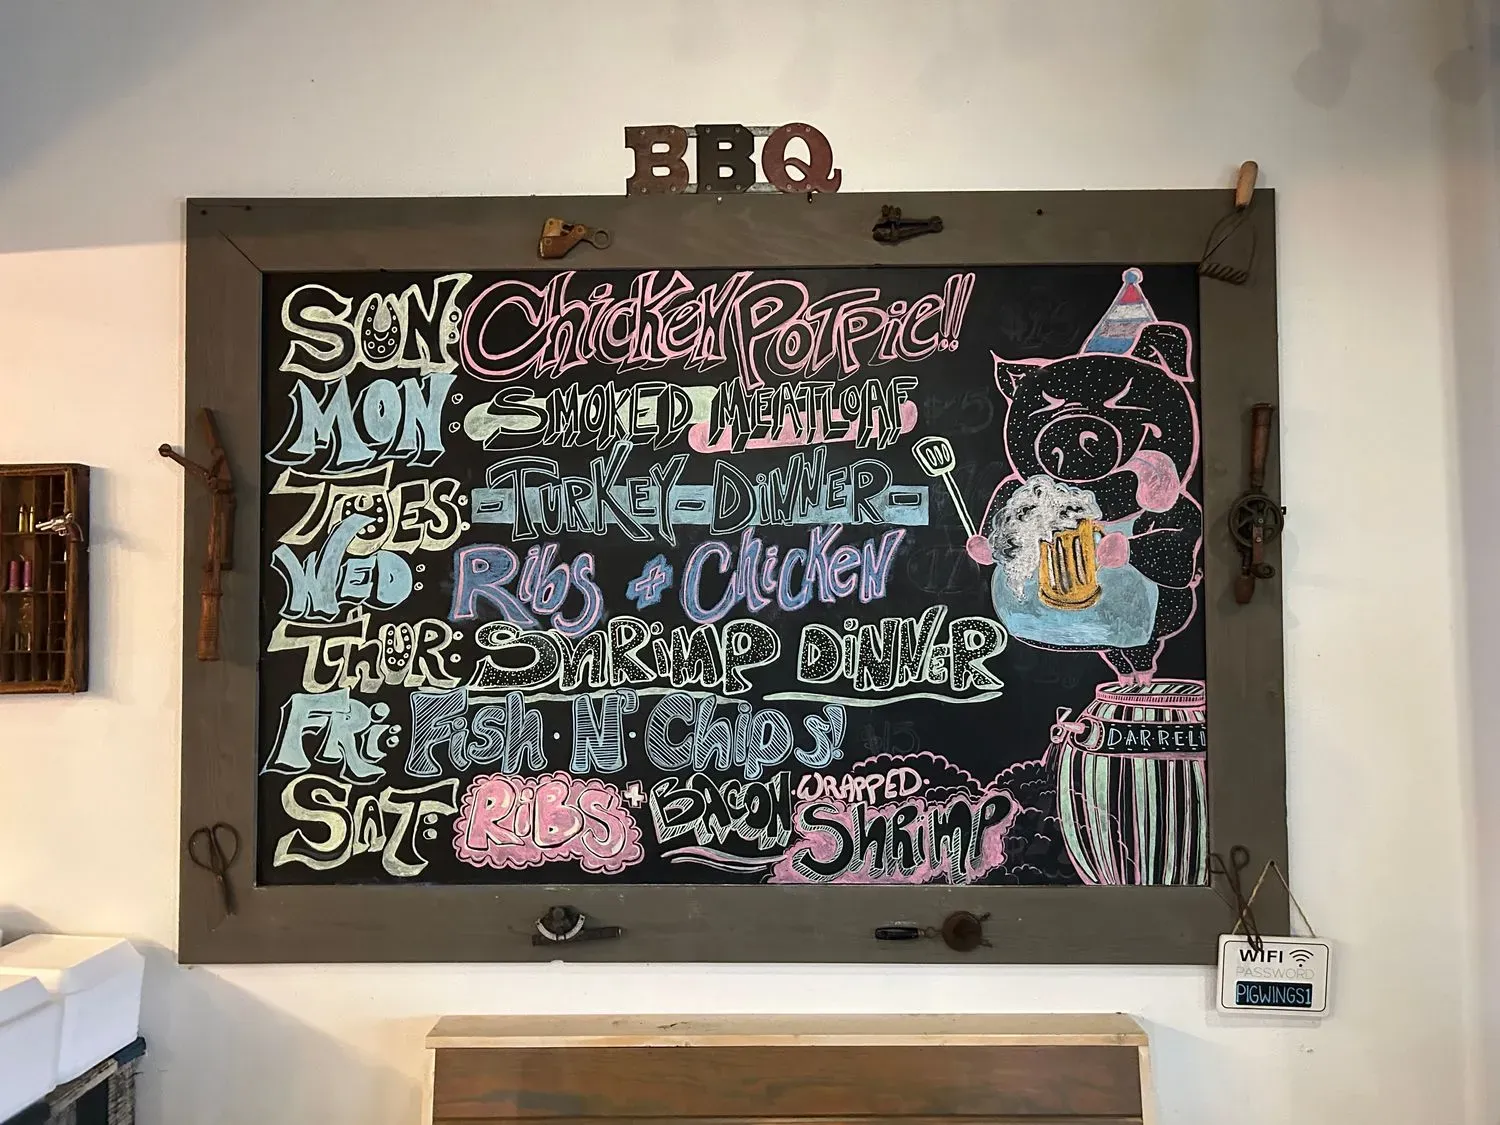 BBQ
SUN: Chicken Pot Pie!!
MON: SMOKED MEATLOAF
TUES: -TURKEY-DINNER-
WED: Ribs + Chicken
THUR: SHRIMP DINNER
FRI: Fish·N'·Chips!
SAT: RIBS + BACON·WRAPPED· Shrimp
DARRELL
WIFI
PASSWORD
PIGWINGS1